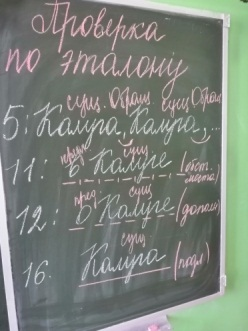 Проверка
по эталону
сущ. Обращ сущ Обращ
5: Калуга, Калуга, ...
предл сущ
11: в Калуге (обст. места)
пред сущ
12: в Калуге (дополн)
сущ
16. Калуга (подл)